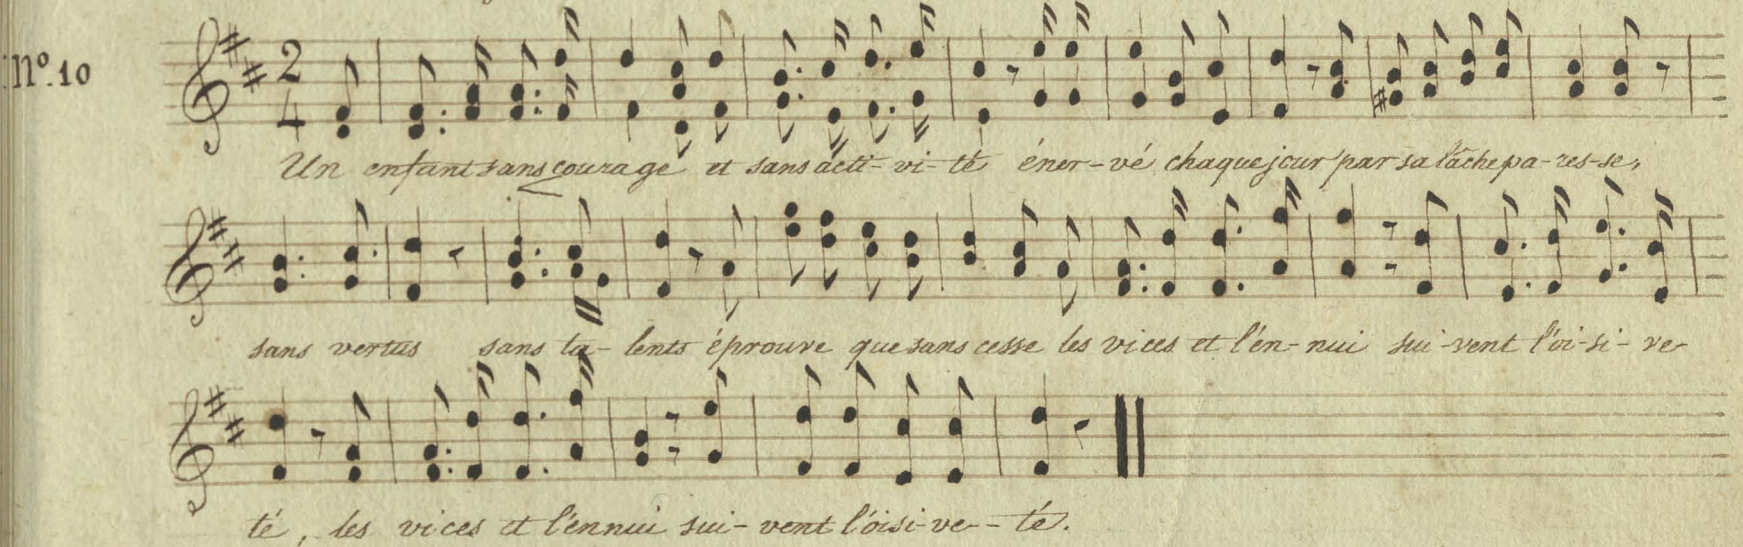 No. 10
2
4
Un enfant sans courage et sans acti-vi-té éner-vé chaque jour par sa lâche pa-res-se,
sans vertus sans ta-lents éprouve que sans cesse les vices et l'en-nui sui-vent l'oi-si-ve-
té, les vices et l'ennui sui-vent l'oisi-ve-té.